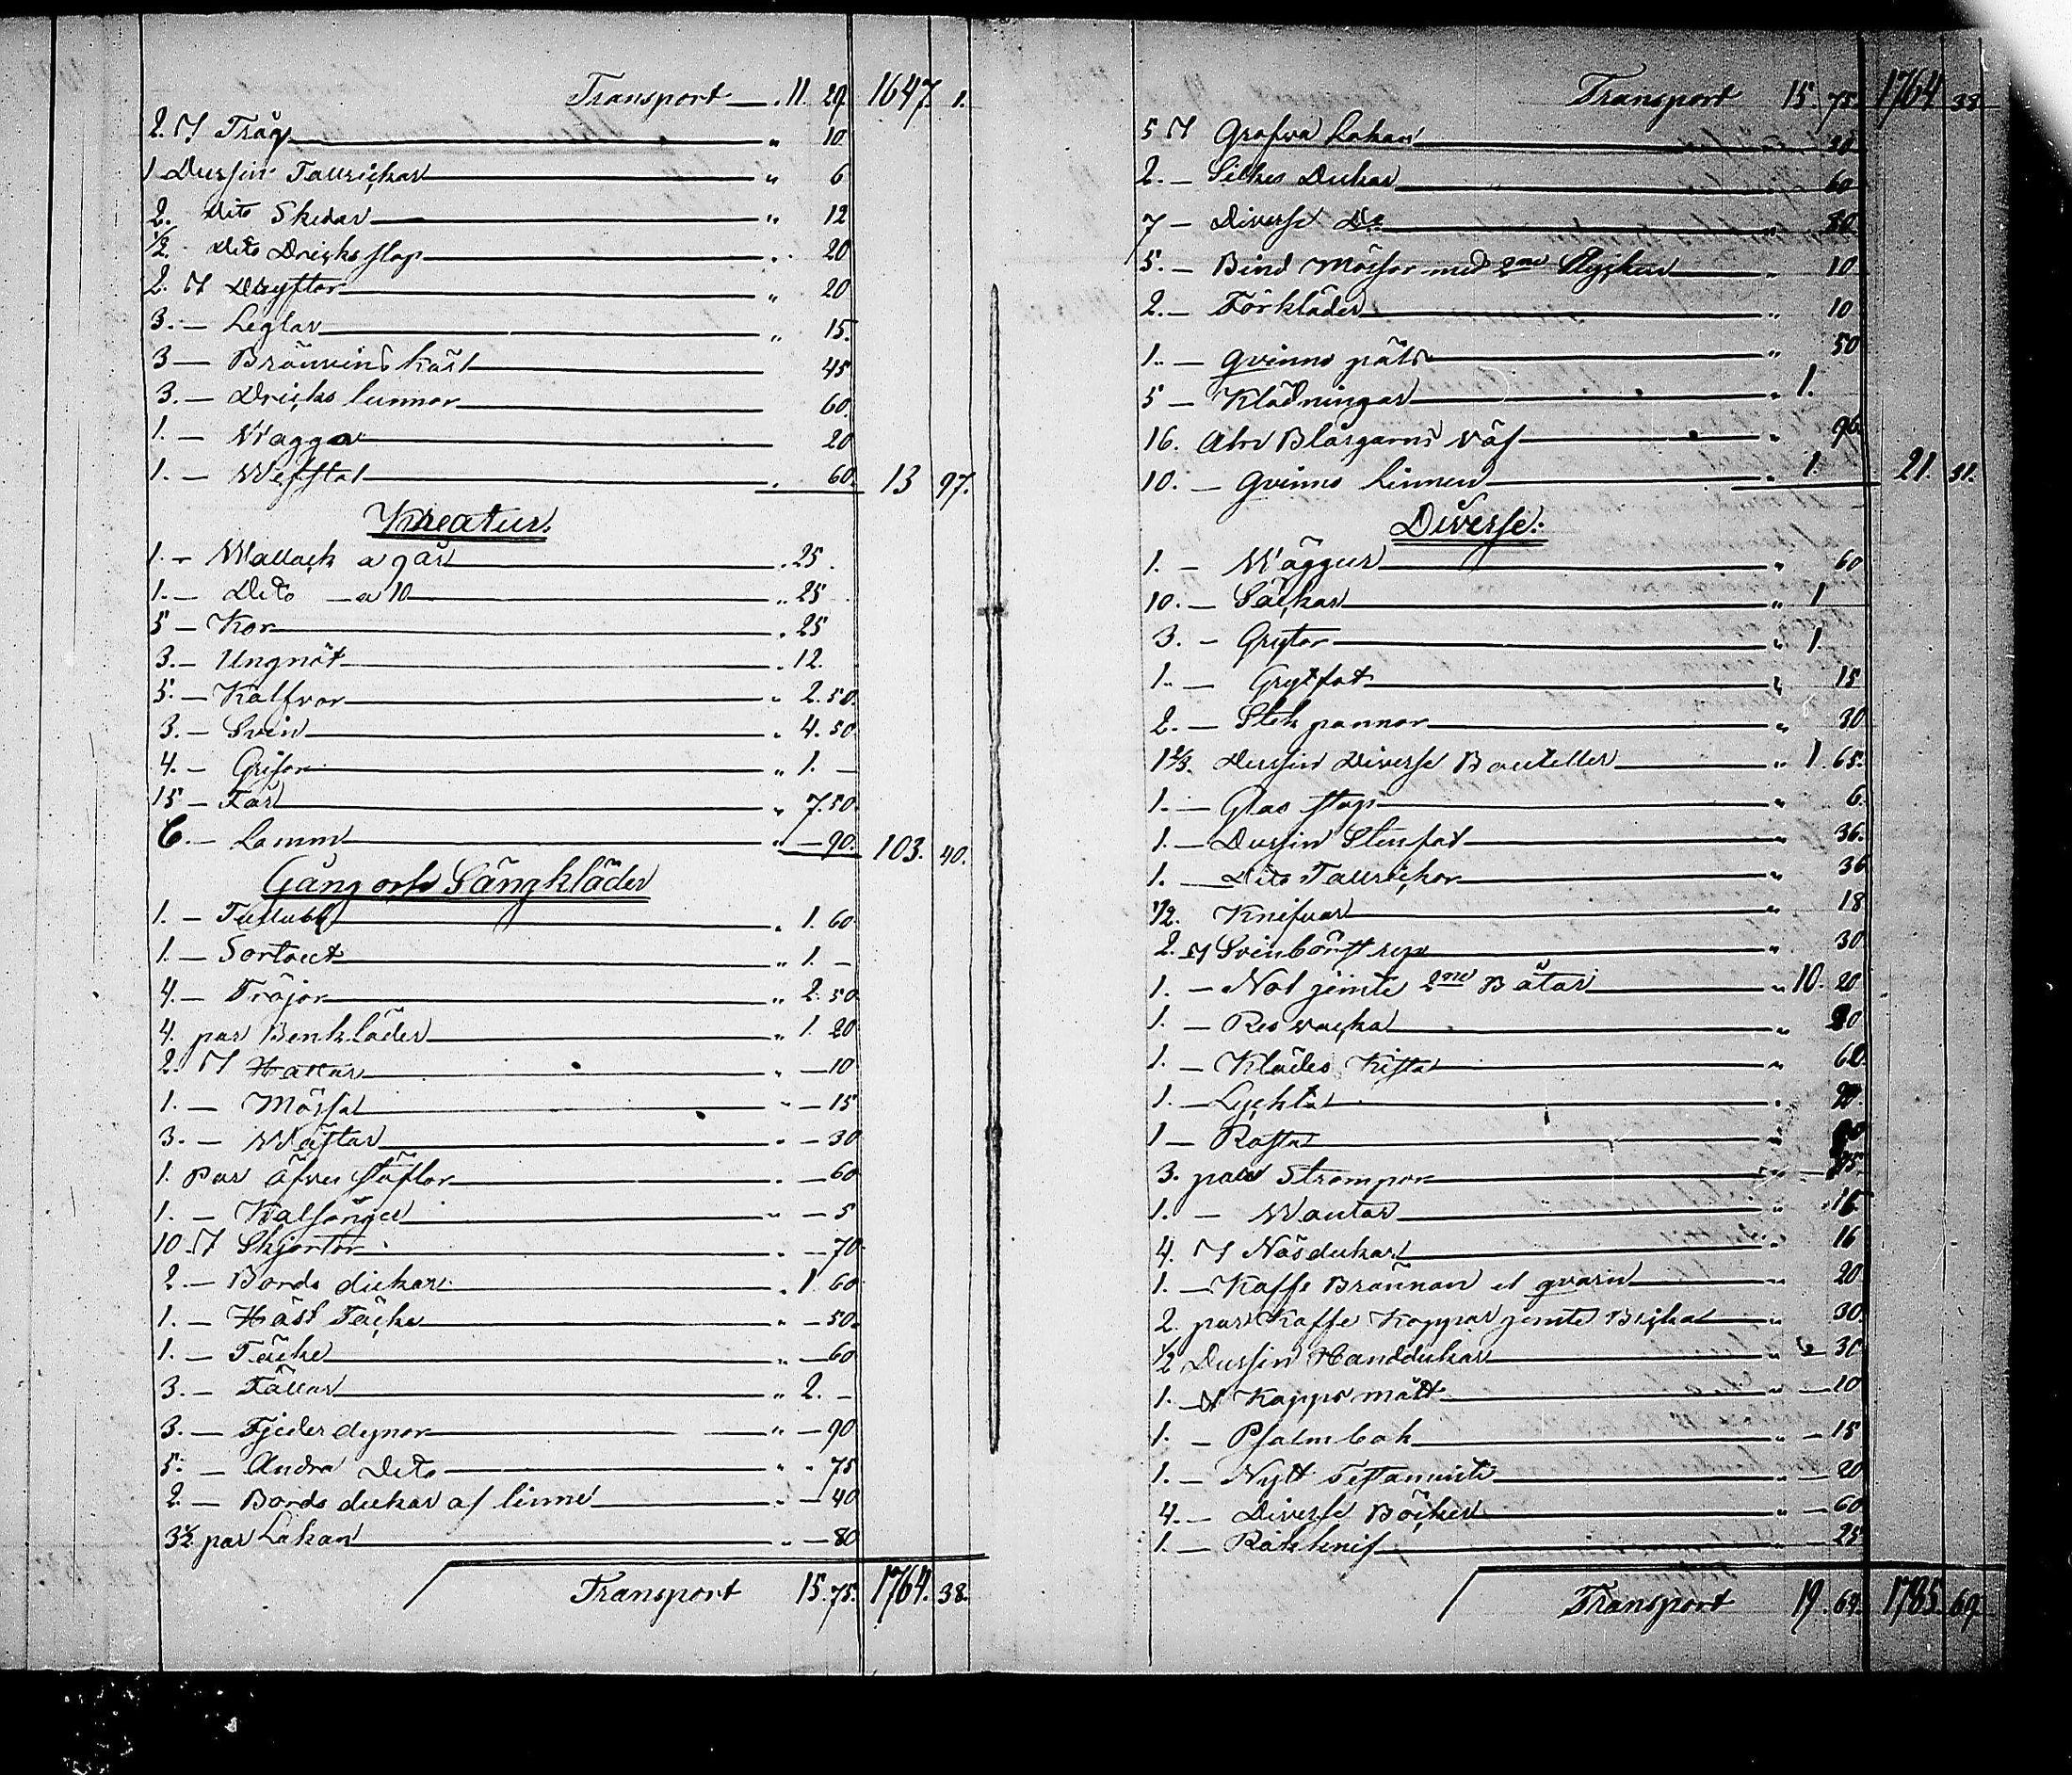 Transport 11 29 1647. 1.
2. st Tråg " 10
1 Dussin Tallrickar " 6
2. Dito Skedar " 12
1/2. Dito Dricks stop " 20
2. st Dryftor " 20
3. — Leglar " 15.
3 — Bränvins kärl 45
3. — Dricks tunnor 60.
1. — Wagga 20
1. — Wefstol 60. 13 97.
Kreatur.
1. - Wallack a 9 år 25.
1. — Dito — a 10 " 25
5 — Kor " 25
3. — Ungnöt 12.
5. — Kalfvar " 2.50.
3. — Svin " 4.50
4. — Grisar " 1. —
15 — Får " 7.50.
6. — Lamm " — 90. 103. 40.
Gång och Sängkläder
1. — Tullubb " 1.60.
1. — Sortout " 1. —
4. — Tröjor " 2.50
4. par Benkläder " 1.20
2. st Hattar " — 10
1. — Mössa " — 15
3. — Wästar " — 30
1. Par öfver stöflor — 60
1. — Kalsånger " — 5
10 st Skjortor — 70.
2. — Bords dukar 1 60
1. — Häst Täcke " — 50.
1. — Täcke " — 60
3. — Fällar " 2. —
3. — Fjeder dynor " — 90
5. — Andra Dito " - 75
2. — Bords dukar af linne " — 40
3 1/2 par Lakan " — 80
Transport 15.75. 1764. 38.
Transport 15.75. 1764 38
5 st Grofva Lakan 30
2. — Silkes Dukar 60
7 — Diverse Do " 80
5. — Bind Mössor med 2ne Stycken " 10
2. — Förkläder " 10
1.. — qvinno päls " 50
5 — Klädningar " 1.
16. Aln Blårgarns Väf " 96.
10. — qvinns Linnen " 1. 21. 31.
Diverse:
1. — Wäggur " 60
10. — Säckar " 1
3. — Grytor " 1.
1.. — Grytfat " 15
2. — Stek pannor " 30
1 2/3. Dussin Diverse Bouteller " 1.65.
1. — Glas stop " 6.
1. — Dussin Stenfat " 36.
1. — Dito Tallrickor " 36
1/2. Knifvar " 18
2. st Svinbörst rep " 30
1. — Not jemte 2ne Båtar " 10. 20
1. — Res väcka " 20
1. — Klädes Kista " 60.
1. — Lyckta "
1 — Rosta "
3. par Strumpor
1. — Wantar " 15
4. st Näsdukar " 16
1. — Kaffe Brännare et qvarn " 20
2. par Kaffe Koppar jemte Bricka " 30.
1/2 Dussin Handdukar " 30
1. st Kappe mått " — 10
1. — Psalmbok " — 15
1. — Nytt Testamente " — 20
4. — Diverse Böcker " — 60
1. — Rakknif " — 25
Transport 19.69. 1785. 69